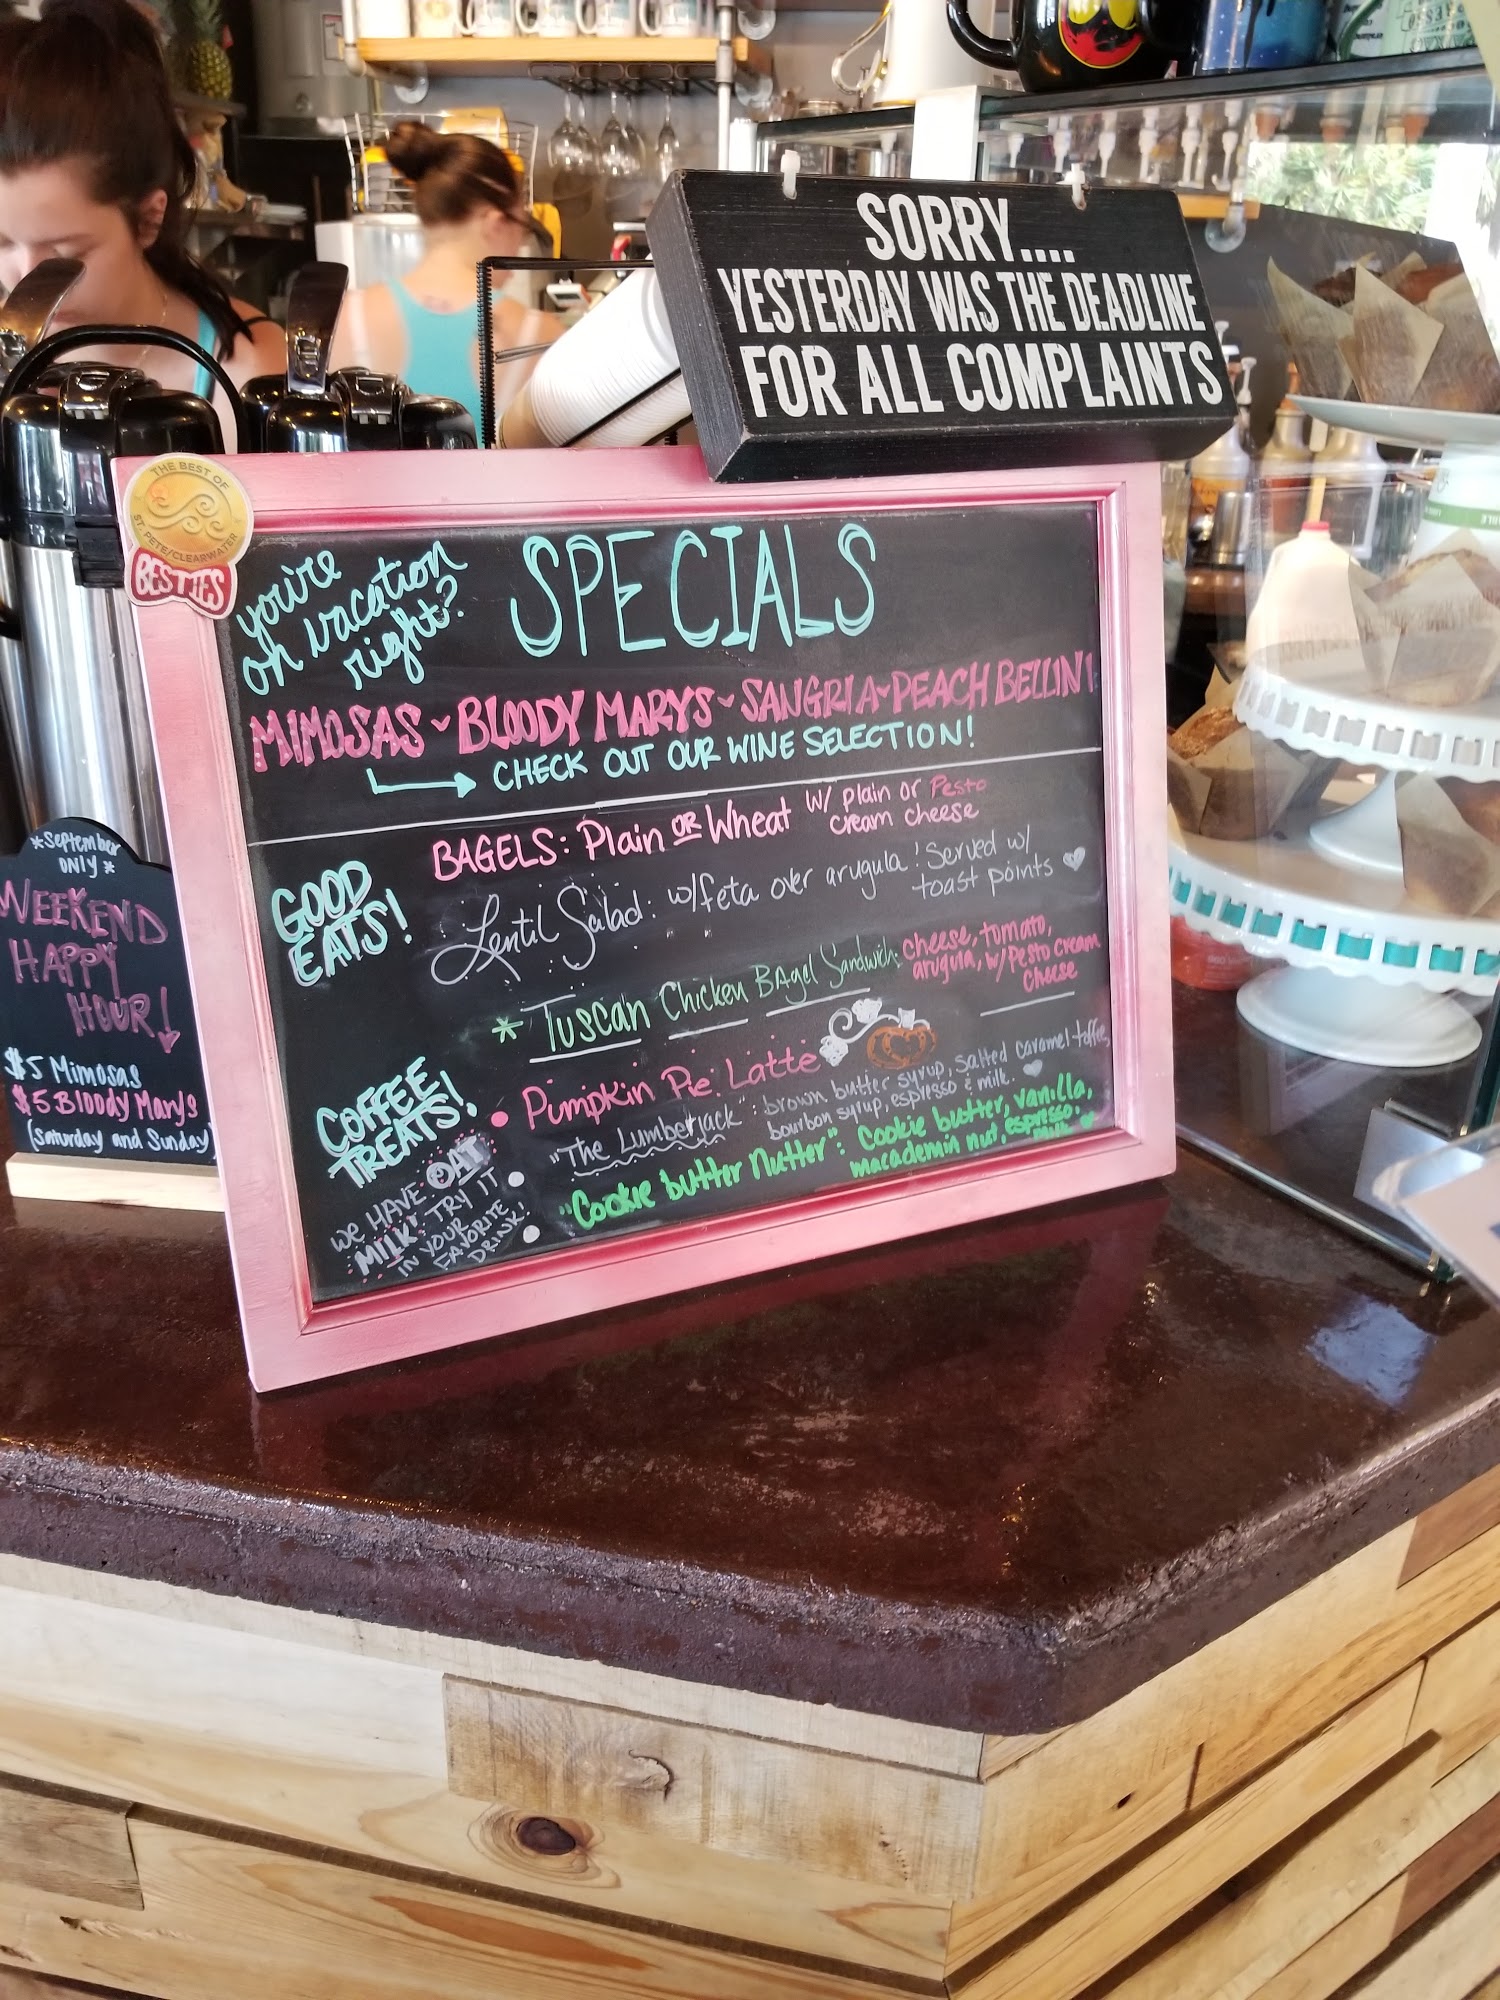 SORRY....
YESTERDAY WAS THE DEADLINE
FOR ALL COMPLAINTS
THE BEST OF
ST. PETE/CLEARWATER
BESTIES
you're
on vacation
right?
SPECIALS
MIMOSAS ~ BLOODY MARYS ~ SANGRIA ~ PEACH BELLINI
CHECK OUT OUR WINE SELECTION!
GOOD
EATS!
BAGELS: Plain OR Wheat w/ plain or Pesto
cream cheese
Lentil Salad: w/feta over arugula! Served w/
toast points
* Tuscan Chicken Bagel Sandwich: cheese, tomato,
arugula, w/Pesto cream
cheese
COFFEE
TREATS!
• Pumpkin Pie Latte
"The Lumberjack": brown butter syrup, salted caramel toffee,
bourbon syrup, espresso & milk.
"Cookie butter Nutter": Cookie butter, vanilla,
macademin nut, espresso,
milk
WE HAVE OAT
MILK! TRY IT
IN YOUR
FAVORITE
DRINK!
*September
ONLY*
WEEKEND
HAPPY
HOUR!
$5 Mimosas
$5 Bloody Marys
(Saturday and Sunday)